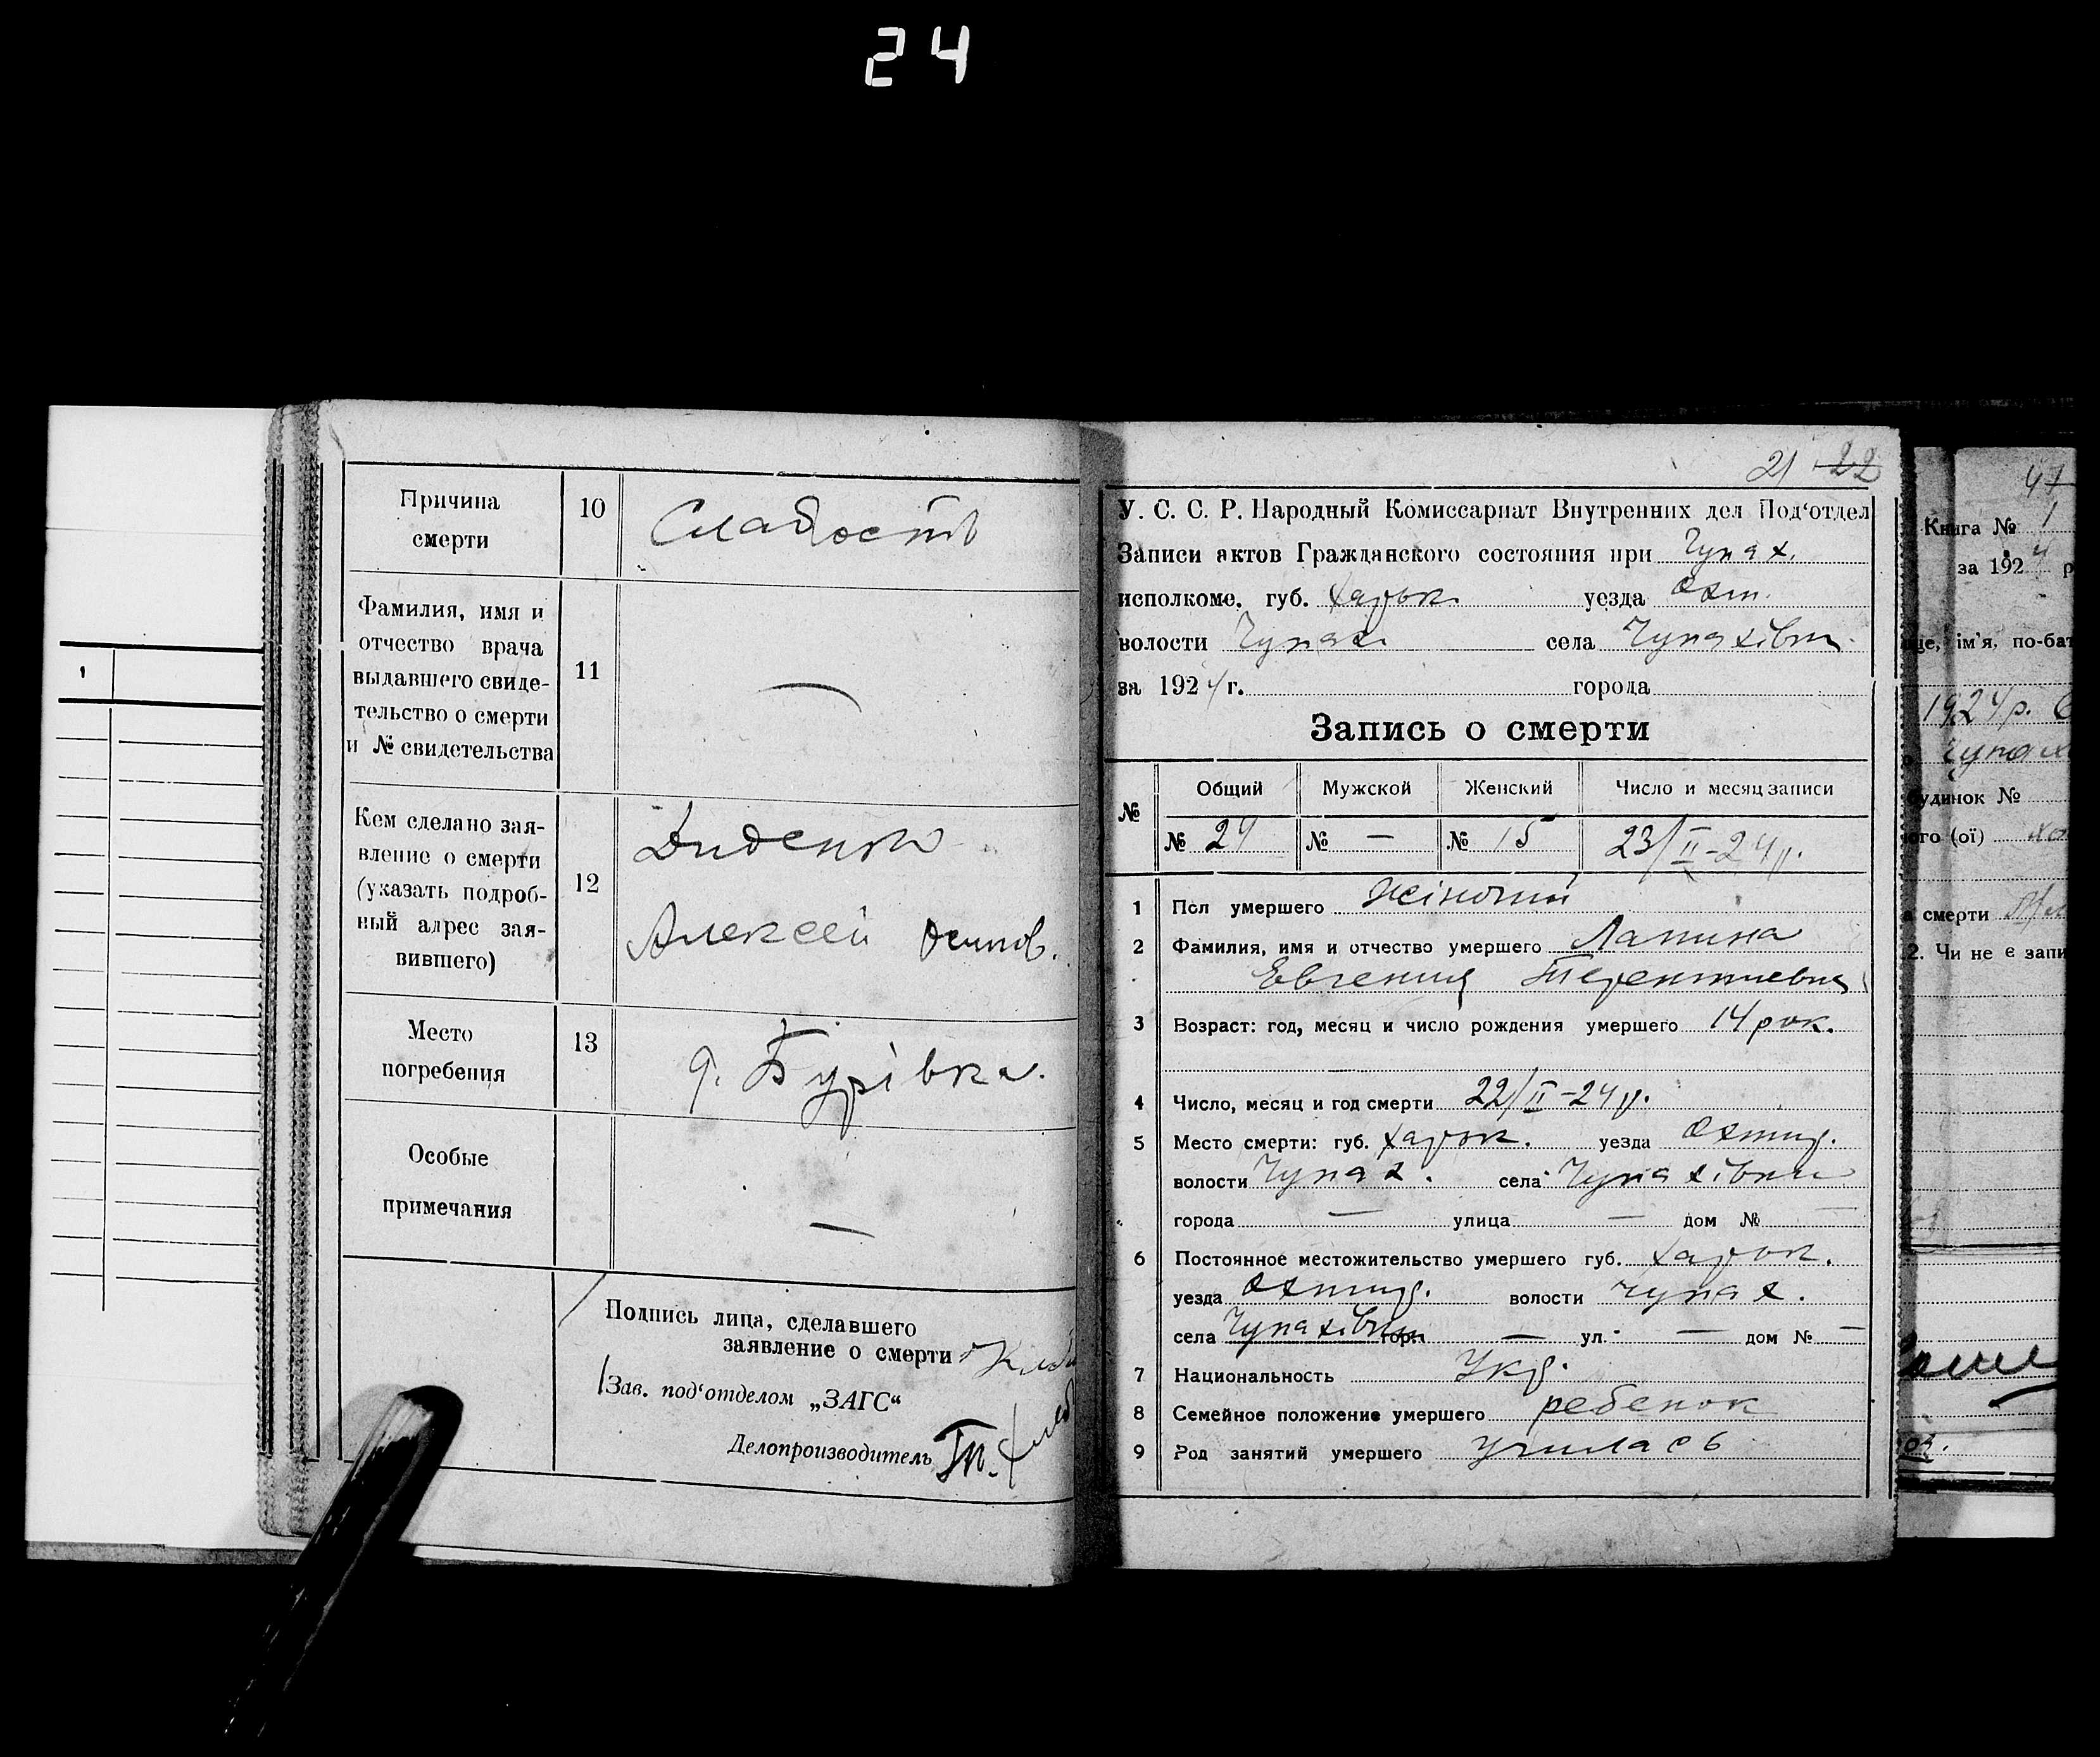 24
Причина
смерти
10
Слабость
Фамилия, имя и
отчество врача
выдавшего свиде-
тельство о смерти
и № свидетельства
11
—
Кем сделано зая-
вление о смерти
(указать подроб-
ный адрес зая-
вившего)
12
Диденко
Алексей Осипов.
Место
погребения
13
Бурівка.
Особые
примечания
—
Подпись лица, сделавшего
заявление о смерти
Зав. под‘отделом „ЗАГС“
Делопроизводитель
1
21 22
У. С. С. Р. Народный Комиссариат Внутренних дел Под‘отдел
Записи актов Гражданского состояния при Чупах.
исполкоме. губ. Харьк. уезда Охт.
волости Чупах. села Чупахівки
за 1924 г. города
Запись о смерти
№ Общий Мужской Женский Число и месяц записи
№ 24 № — № 15 23/II-24 р.
1 Пол умершего Жіночий
2 Фамилия, имя и отчество умершего Лапина
Евгения Терентиевна
3 Возраст: год, месяц и число рождения умершего 14 рок.
4 Число, месяц и год смерти 22/II-24 р.
5 Место смерти: губ. Харьк. уезда Охтир.
волости Чупах. села Чупахівки
города — улица — дом № —
6 Постоянное местожительство умершего губ. Харьк.
уезда Охтир. волости Чупах.
села Чупахівки гор. — ул. — дом № —
7 Национальность Укр.
8 Семейное положение умершего ребенок
9 Род занятий умершего училась
47
Книга № 1
за 1924 р
ім’я, по-бат
1924 р.
Чупах
будинок №
ого (ої)
смерти
2. Чи не є запи